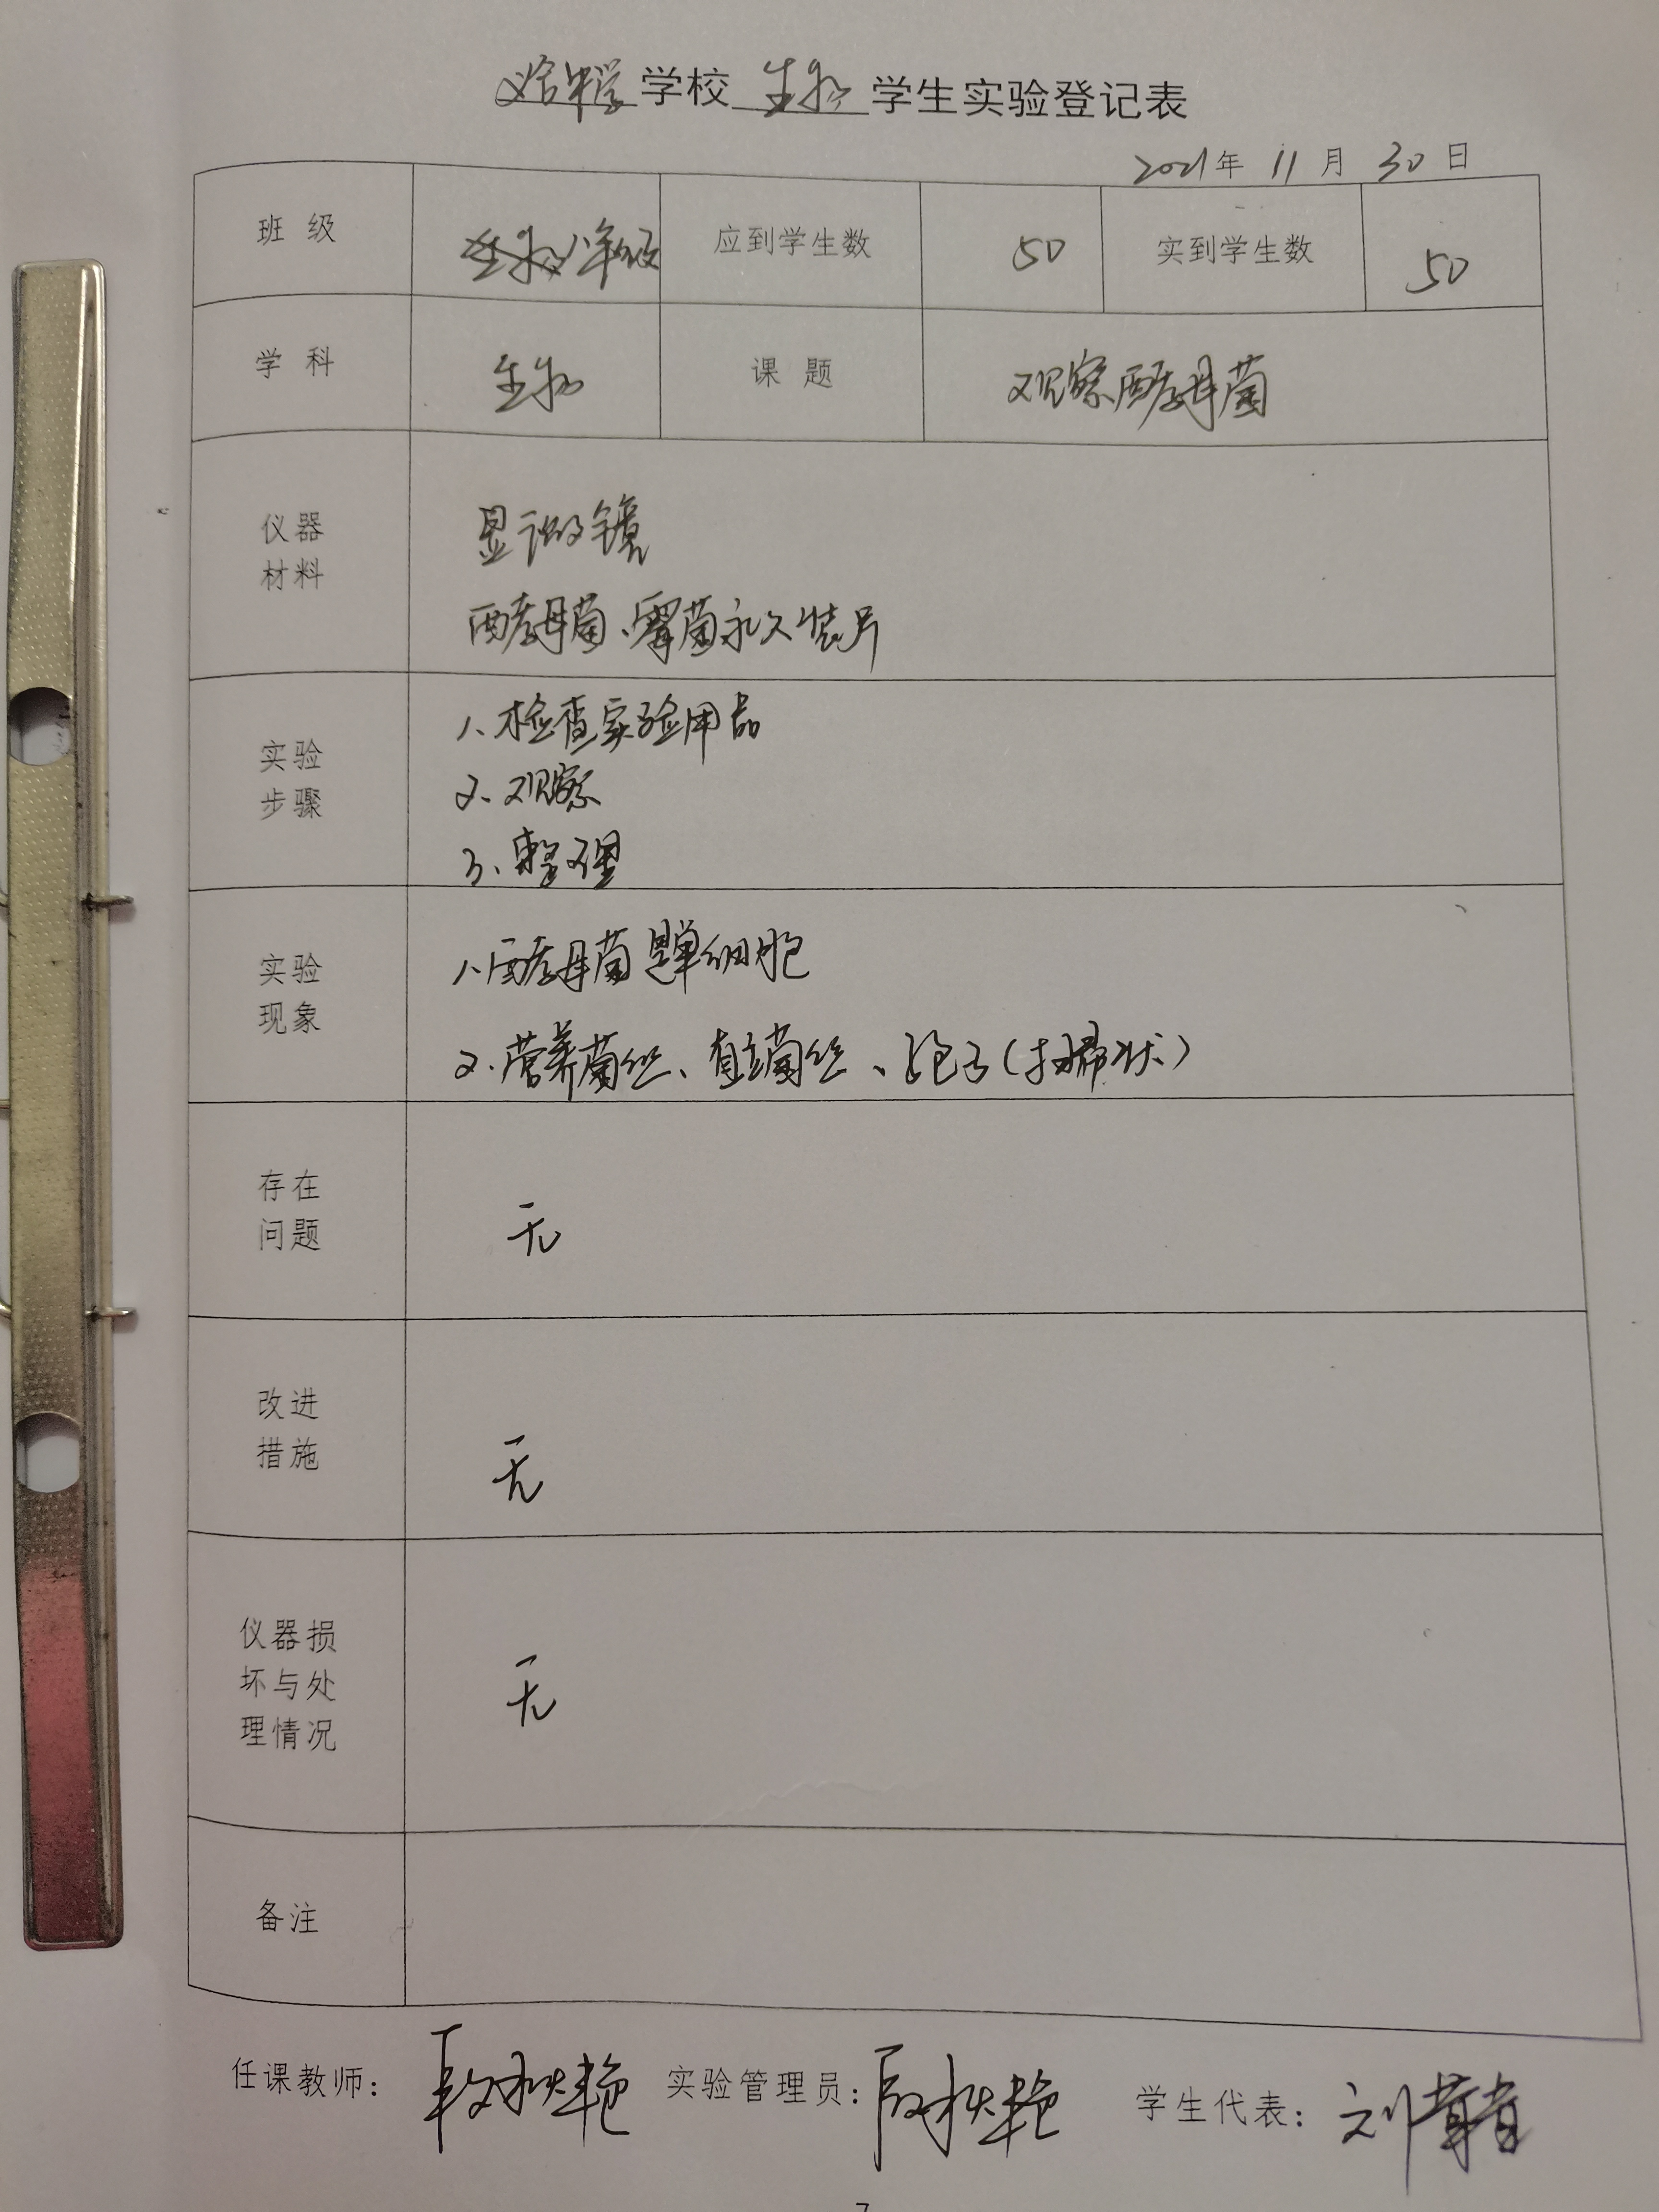 学校 生物 学生实验登记表
2021年 11 月 30 日
班 级 八年级 应到学生数 50 实到学生数 50
学 科 生物 课 题 观察酵母菌
仪器
材料
显微镜
酵母菌、霉菌永久装片
实验
步骤
1、检查实验用品
2、观察
3、整理
实验
现象
1、酵母菌是单细胞
2、营养菌丝、直立菌丝、孢子(扫帚状)
存在
问题
无
改进
措施
无
仪器损
坏与处
理情况
无
备注
任课教师: 段秋艳 实验管理员: 段秋艳 学生代表: 刘
7